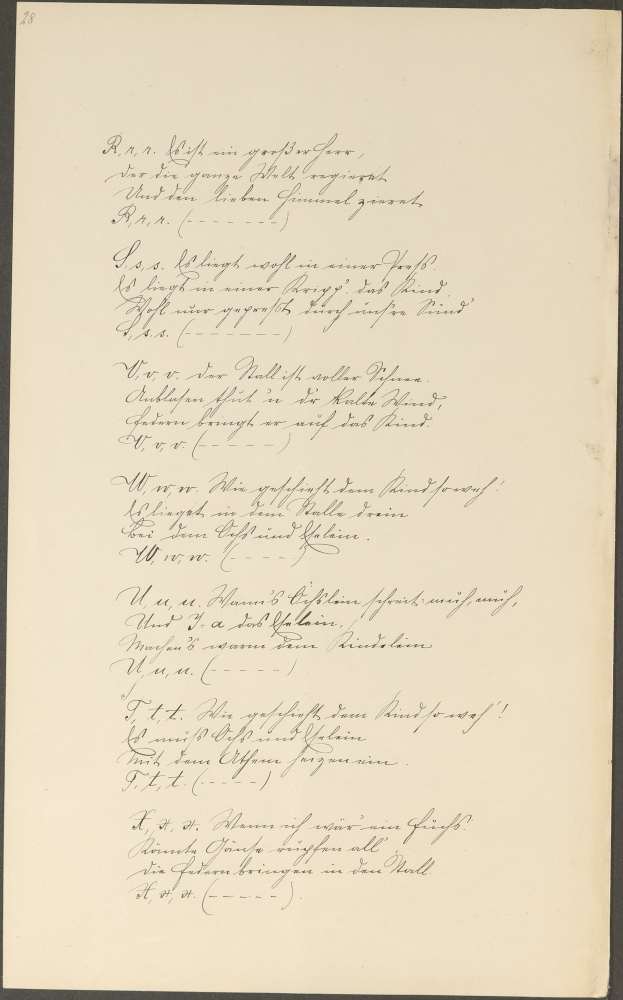 28
R, r, r. Es ist ein großer Herr,
Der die ganze Welt regieret
Und den lieben Himmel zieret
R, r, r. (- - - - - - -)
S, s, s. Es liegt wohl in einer Press.
Es liegt in einer Kripp' das Kind
Wohl nur gepresst durch unsre Sünd'
S, s, s. (- - - - - - -)
V, v, v. Der Stall ist voller Schnee.
Anblasen thut 'n d'r kalte Wind,
Federn bringt er auf das Kind.
V, v, v. (- - - - -)
W, w, w. Wie geschieht dem Kind so weh'!
Es lieget in dem Stalle drein
Bei dem Ochs und Eselein.
W, w, w. (- - - -)
U, u, u. Wann's Öchslein schreit: muh, muh,
Und I-a das Eselein,
Machen's warm dem Kindelein
U, u, u. (- - - - -)
T, t, t. Wie geschieht dem Kind so weh'!
Es muß Ochs und Eselein
Mit dem Athem heizen ein.
T, t, t. (- - - - -)
X, x, x. Wenn ich wär' ein Fuchs.
Könnte Gänse rupfen all',
Die Federn bringen in den Stall
X, x, x. (- - - - -).